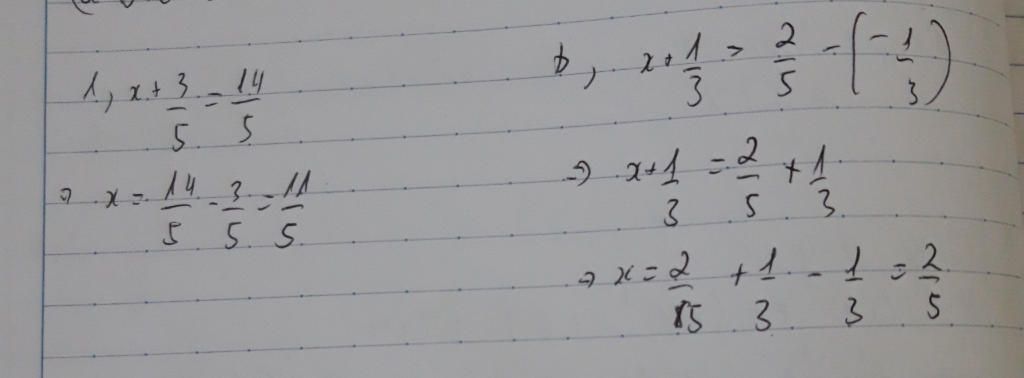 1, x + 3/5 = 14/5
⇒ x = 14/5 - 3/5 = 11/5
b, x + 1/3 = 2/5 - (-1/3)
⇒ x + 1/3 = 2/5 + 1/3
⇒ x = 2/5 + 1/3 - 1/3 = 2/5